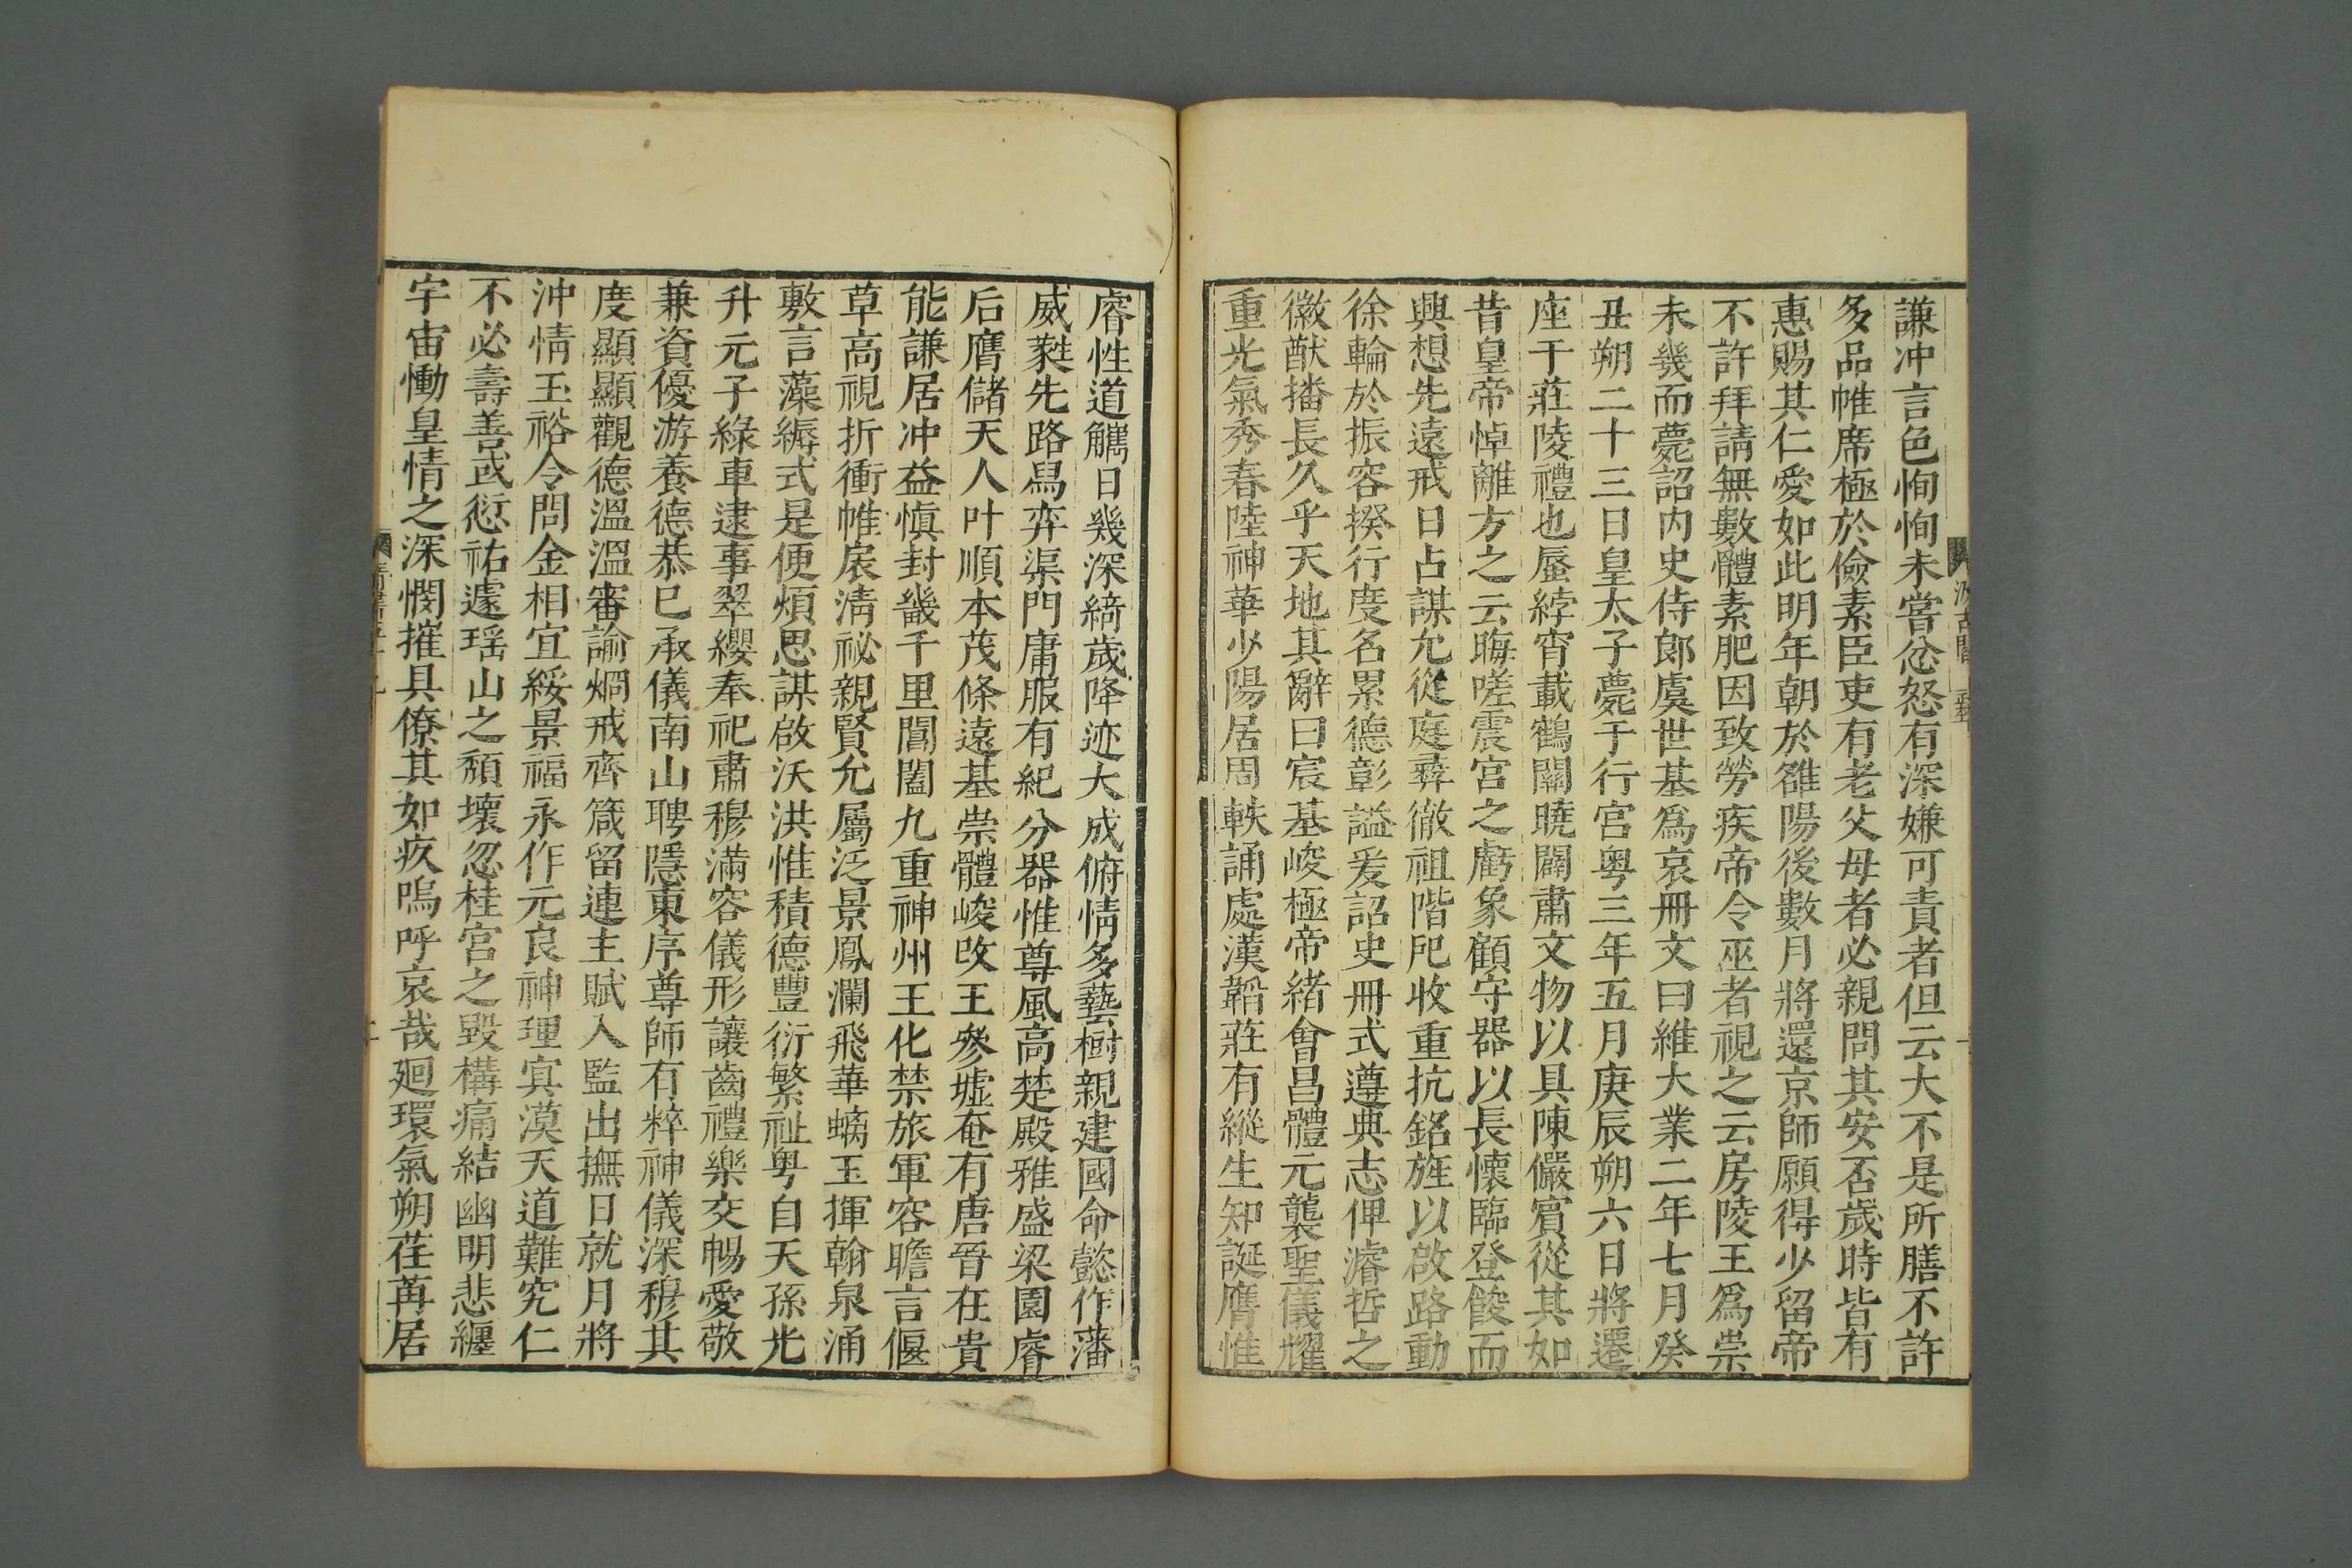 謙沖言色恂恂未嘗忿怒有深嫌可責者但云大不是所膳不許
多品帷席極於儉素臣吏有老父母者必親問其安否歲時皆有
惠賜其仁愛如此明年朝於雒陽後數月將還京師願得少留帝
不許拜請無數體素肥因致勞疾帝令巫者視之云房陵王爲祟
未幾而薨詔内史侍郎虞世基爲哀冊文曰維大業二年七月癸
丑朔二十三日皇太子薨于行宮粤三年五月庚辰朔六日將遷
座于莊陵禮也蜃綍宵載鶴關曉闢肅文物以具陳儼賔從其如
昔皇帝悼離方之云晦嗟震宮之虧象顧守器以長懷臨登餕而
興想先遠戒日占謀允從庭彛徹祖階戺收重抗銘旌以啟路動
徐輪於振容揆行度名累德彰謚爰詔史冊式遵典志俾濬哲之
徽猷播長久乎天地其辭曰宸基峻極帝緒會昌體元襲聖儀耀
重光氣秀春陸神華少陽居周軼誦處漢韜莊有縱生知誕膺惟
睿性道觿日幾深締歲降迹大成俯情多藝樹親建國命懿作藩
威蕤先路舄弈渠門庸服有紀分器惟尊風高楚殿雅盛梁園睿
后膺儲天人叶順本茂條遠基崇體峻改王參墟奄有唐晉在貴
能謙居沖益慎封畿千里閶闔九重神州王化禁旅軍容瞻言偃
草高視折衝帷扆清祕親賢允屬泛景鳳瀾飛華螭玉揮翰泉涌
敷言藻縟式是便煩思謀啟沃洪惟積德豐衍繁祉粤自天孫光
升元子綠車逮事翠纓奉祀肅穆滿容儀形讓齒禮樂交暢愛敬
兼資優游養德恭已承儀南山聘隱東序尊師有粹神儀深穆其
度顯顯觀德溫溫審諭炯戒齊箴留連主賦入監出撫日就月將
沖情玉裕令問金相宜綏景福永作元良神理寘漠天道難究仁
不必壽善或愆祐遽瑶山之頹壞忽桂宮之毀構痛結幽明悲纏
宇宙慟皇情之深憫摧具僚其如疚嗚呼哀哉廻環氣朔荏苒居